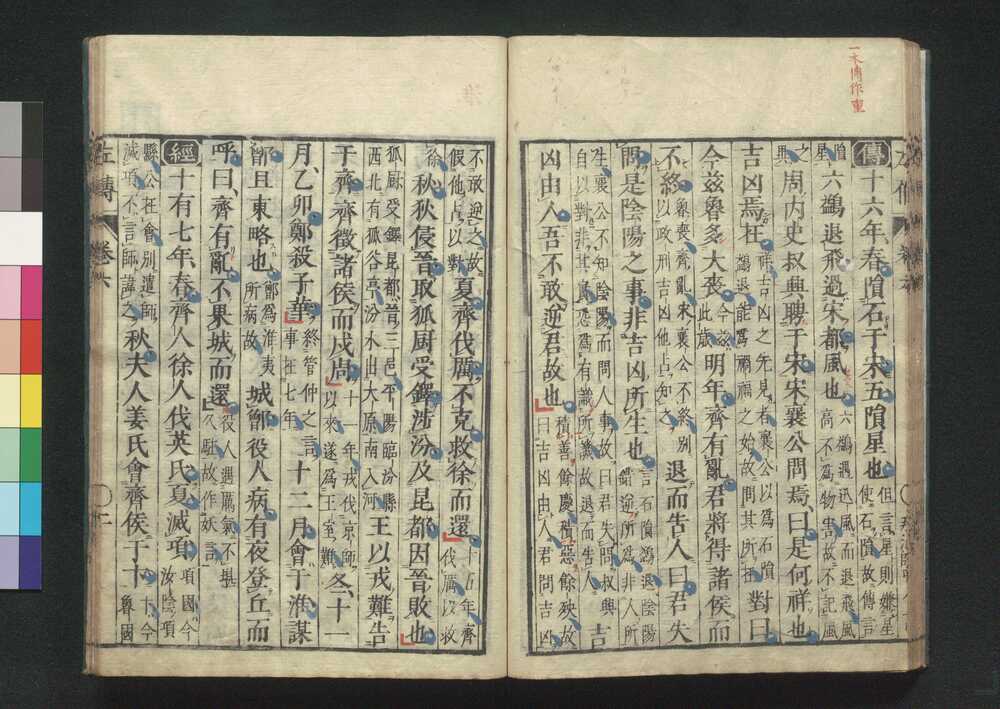 一本傅作重
傳十六年春隕石于宋五隕星也但言星則嫌星使石隕故傳言
隕星六鷁退飛過宋都風也六鷁遇迅風而退飛風高不爲物害故不記風
之周內史叔興聘于宋宋襄公問焉曰是何祥也
吉凶焉在祥吉凶之先見者襄公以爲石隕鷁退能爲禍福之始故問其所在對曰
今茲魯多大喪今茲此歲明年齊有亂君將得諸侯而
不終魯喪齊亂宋襄公不終別以政刑吉凶他占知之退而告人曰君失
問是陰陽之事非吉凶所生也言石隕鷁退陰陽錯逆所爲非人所
生襄公不知陰陽而問人事故曰君失問叔興自以對非其實恐爲有識所譏故退而告人吉
凶由人吾不敢逆君故也積善餘慶積惡餘殃故曰吉凶由人君問吉凶
不敢逆之故假他占以對夏齊伐厲不克救徐而還十五年齊伐厲以救
徐秋狄侵晉取狐厨受鐸涉汾及昆都因晉敗也
狐厨受鐸昆都晉三邑平陽臨汾縣西北有狐谷亭汾水出大原南入河王以戎難告
于齊齊徵諸侯而戍周十一年戎伐京師以來遂爲王室難冬十一
月乙卯鄭殺子華終管仲之言事在七年十二月會于淮謀
鄫且東略也鄫爲淮夷所病故城鄫役人病有夜登丘而
呼曰齊有亂不果城而還役人遇厲氣不堪久駐故作妖言
經十有七年春齊人徐人伐英氏夏滅項項國今汝陰項
縣公在會別遣師滅項不言師諱之秋夫人姜氏會齊侯于卞卞今魯國
左傳
卷六